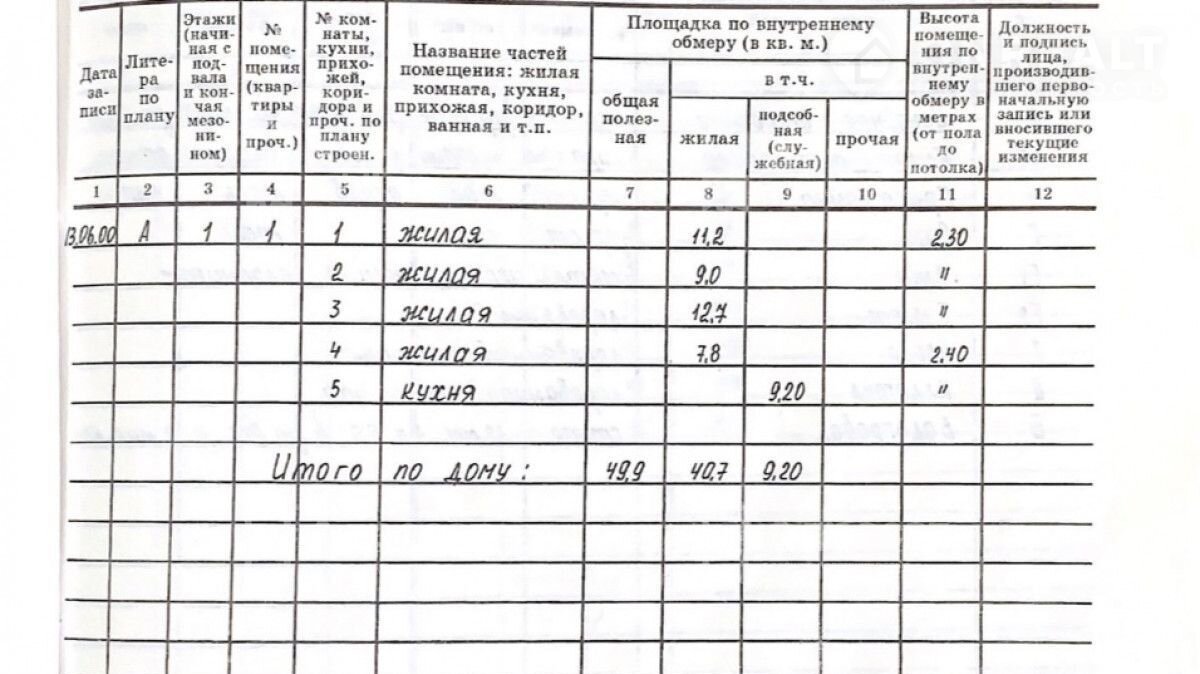 Дата за- писи
Лите- ра по плану
Этажи (начи- ная с под- вала и кон- чая мезо- ни- ном)
№ поме- щения (квар- тиры и проч.)
№ ком- наты, кухни, прихо- жей, кори- дора и проч. по плану строен.
Название частей помещения: жилая комната, кухня, прихожая, коридор, ванная и т.п.
Площадка по внутреннему обмеру (в кв. м.)
общая полез- ная
в т.ч.
жилая
подсоб- ная (слу- жебная)
прочая
Высота помеще- ния по внутрен- нему обмеру в метрах (от пола до потолка)
Должность и подпись лица, производив- шего перво- начальную запись или вносившего текущие изменения
1 2 3 4 5 6 7 8 9 10 11 12
13.06.00 А 1 1 1 жилая 11,2 2,30
2 жилая 9,0 "
3 жилая 12,7 "
4 жилая 7,8 2.40
5 кухня 9,20 "
Итого по дому: 49,9 40,7 9,20